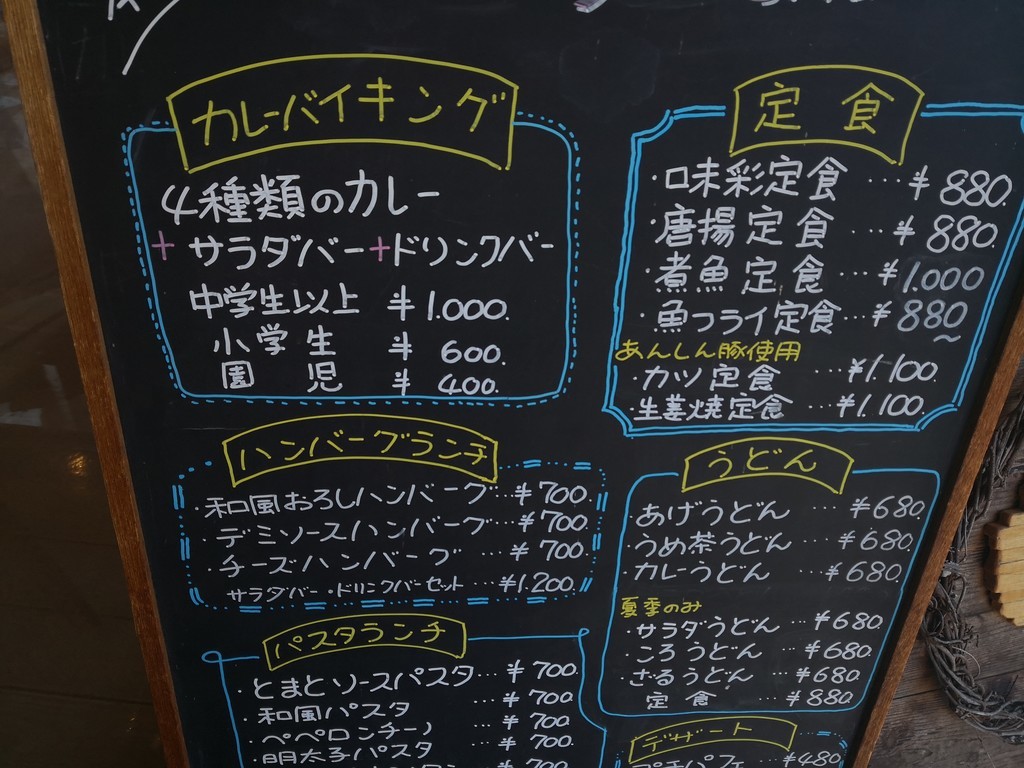 カレーバイキング
4種類のカレー
+サラダバー+ドリンクバー
中学生以上 ¥1.000.
小学生 ¥600.
園児 ¥400.
定食
・口味彩定食…¥880.
・唐揚定食…¥880.
・煮魚定食…¥1.000
・魚フライ定食…¥880~
あんしん豚使用
・カツ定食…¥1.100.
・生姜焼定食…¥1.100.
ハンバーグランチ
・和風おろしハンバーグ…¥700.
・デミソースハンバーグ…¥700.
・チーズハンバーグ…¥700.
サラダバー・ドリンクバーセット…¥1.200.
うどん
・あげうどん…¥680.
・うめ茶うどん…¥680.
・カレーうどん…¥680.
夏季のみ
・サラダうどん…¥680.
・ころうどん…¥680.
・ざるうどん…¥680.
定食…¥880.
パスタランチ
・とまとソースパスタ…¥700.
・和風パスタ…¥700.
・ペペロンチーノ…¥700.
・明太子パスタ…¥700.
…¥700.
デザート
プチパフェ…¥480.